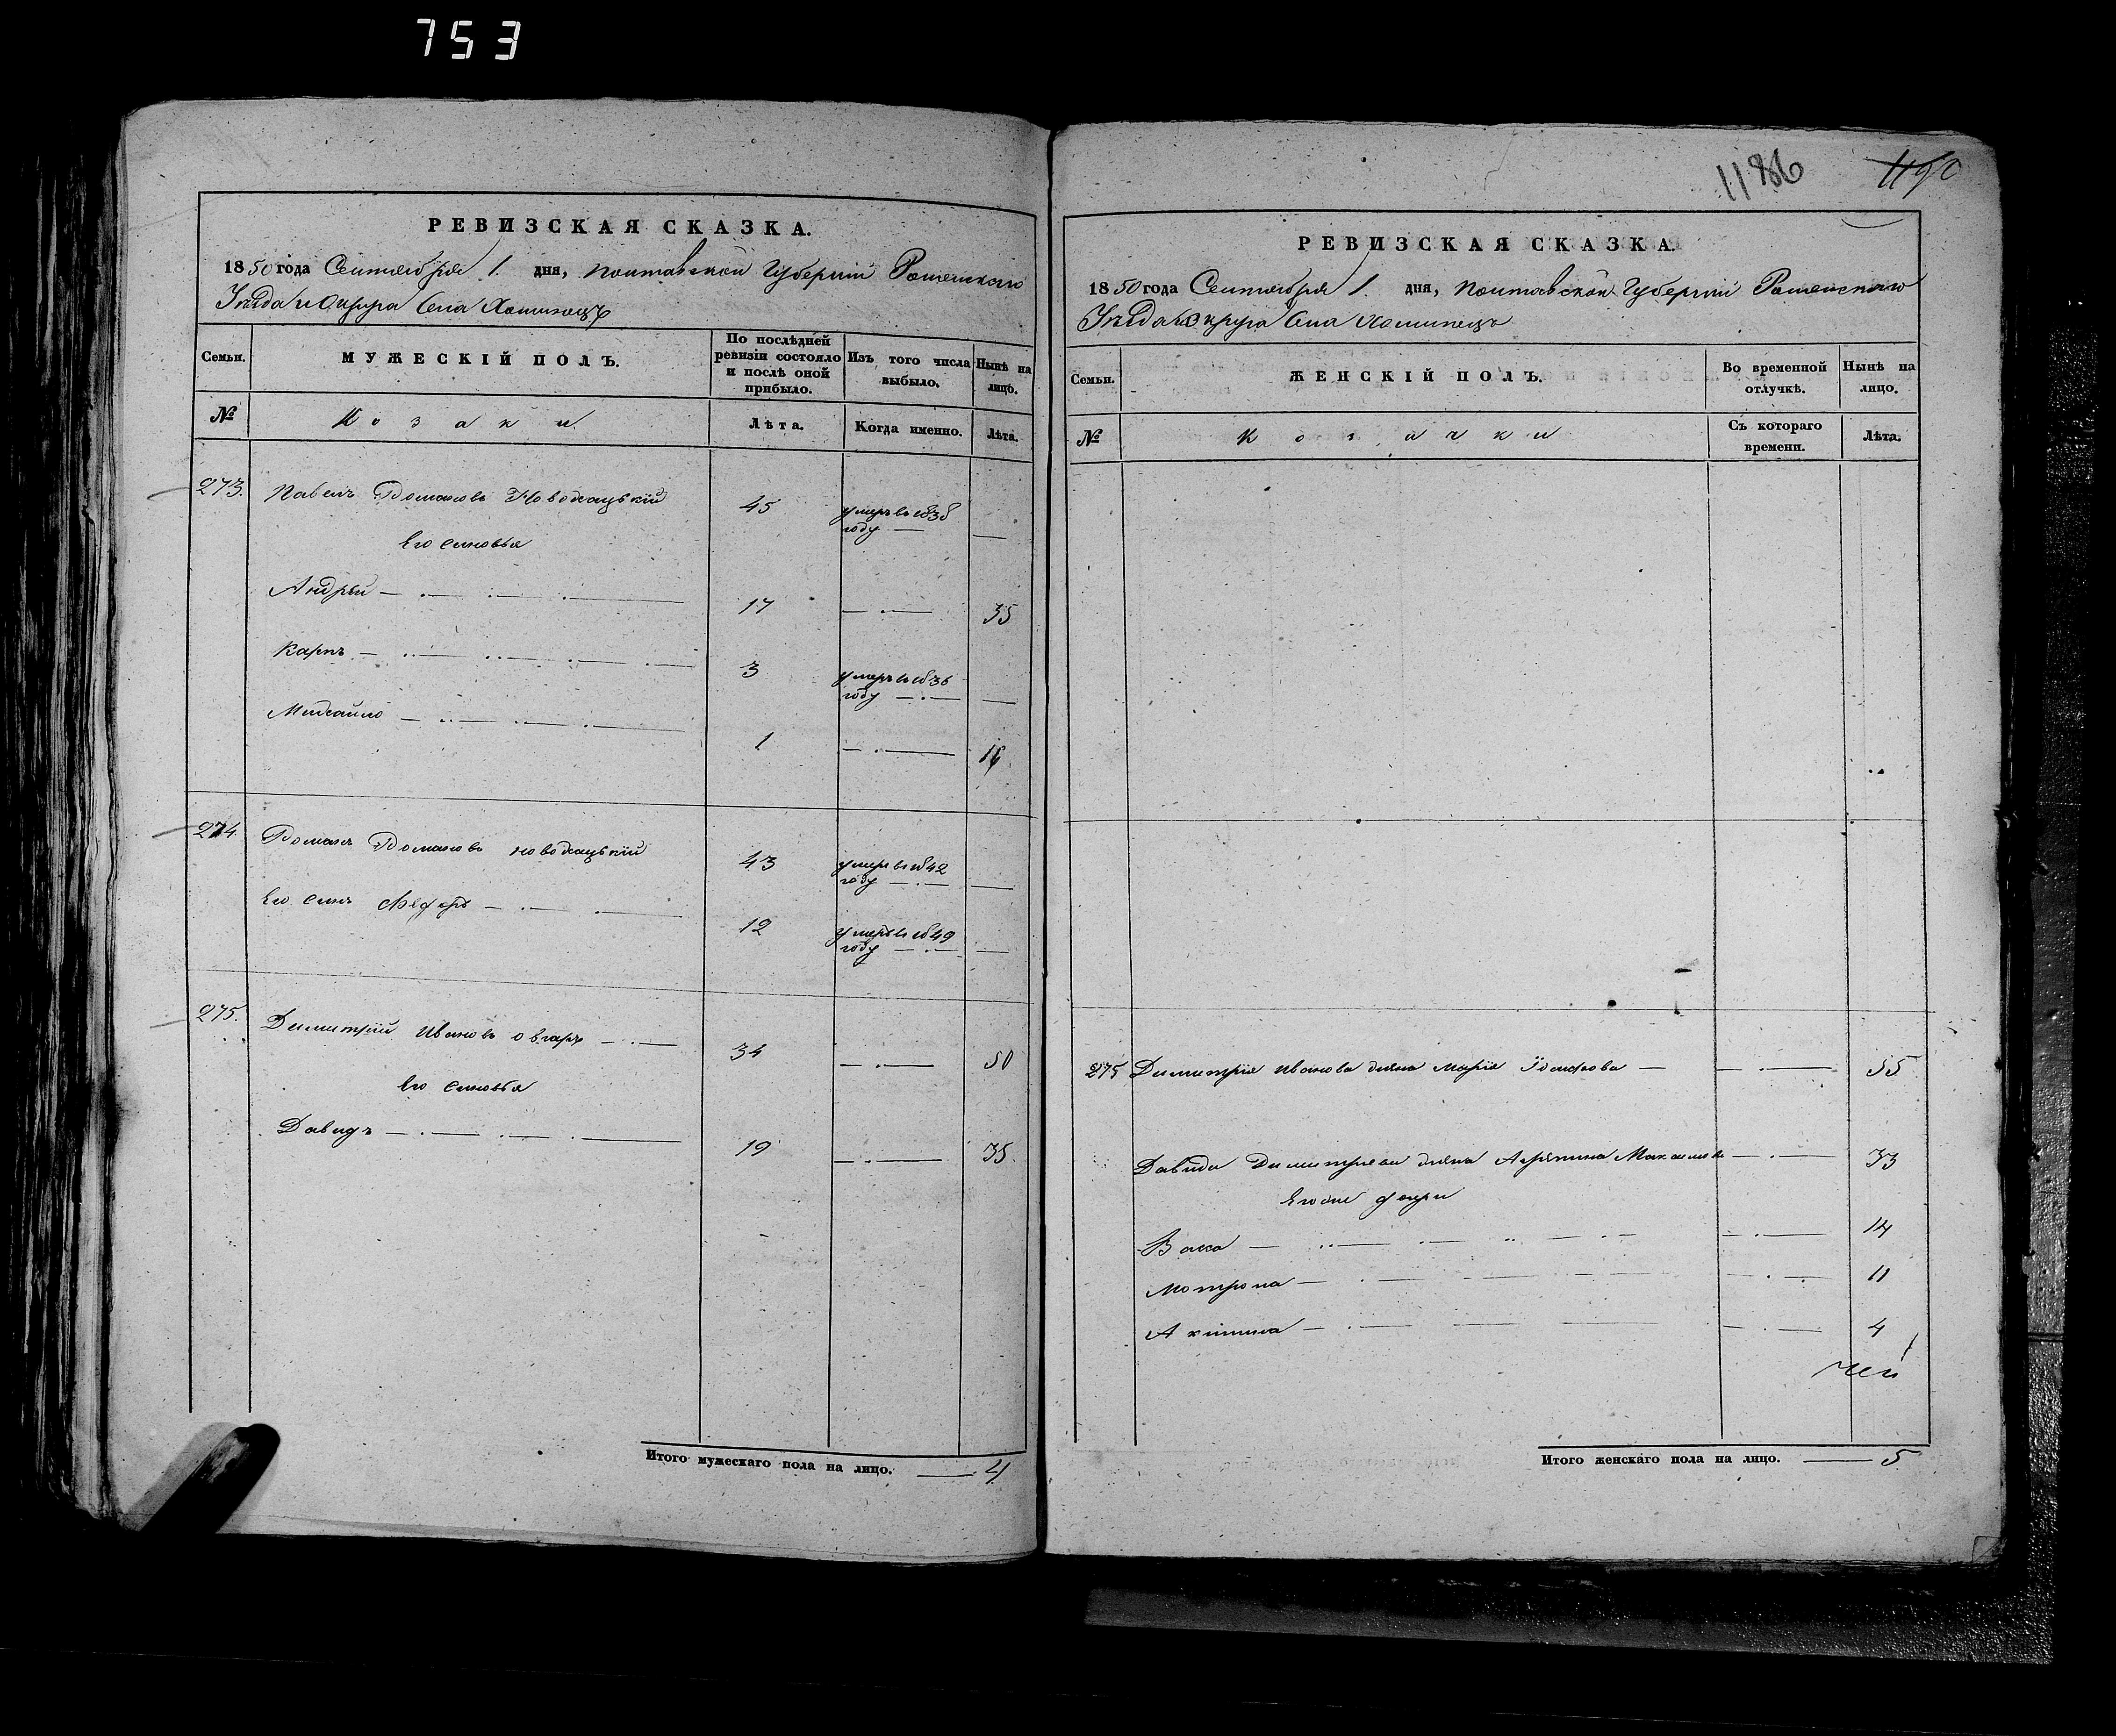 753
1186
1190
РЕВИЗСКАЯ СКАЗКА.
1850 года Сентября 1. дня, Полтавской Губерніи Роменского
Уѣзда и Округа Села Хоминецъ
Семьи.
МУЖЕСКІЙ ПОЛЪ.
По послѣдней ревизіи состояло и послѣ оной прибыло.
Изъ того числа выбыло.
Нынѣ на лицо.
№
Козаки
Лѣта.
Когда именно.
Лѣта.
273. Павелъ Романовъ 45 умеръ въ 1838 году —
Его синовья
Андрѣй 17 — 35
Карпъ 3 умеръ въ 1836 году —
Михайло 1 — 16
274. Романъ Романовъ 43 умеръ въ 1842 году —
Его синъ Ѳедоръ 12 умеръ въ 1849 году —
275. Димитрій Ивановъ Овчаръ 34 — 50
Его синовья
Давидъ 19 — 35
Итого мужескаго пола на лицо. — 4
РЕВИЗСКАЯ СКАЗКА.
1850 года Сентября 1. дня, Полтавской Губерніи Роменского
Уѣзда и Округа Села Хоминецъ
Семьи.
ЖЕНСКІЙ ПОЛЪ.
Во временной отлучкѣ.
Нынѣ на лицо.
№
Козачки
Съ котораго времени.
Лѣта.
275 Димитрія Иванова жена Марія — 55
Давида Димитріева жена 33
дочери
Васса — 14
Мотрона — 11
Акилина — 4
Итого женскаго пола на лицо. — 5